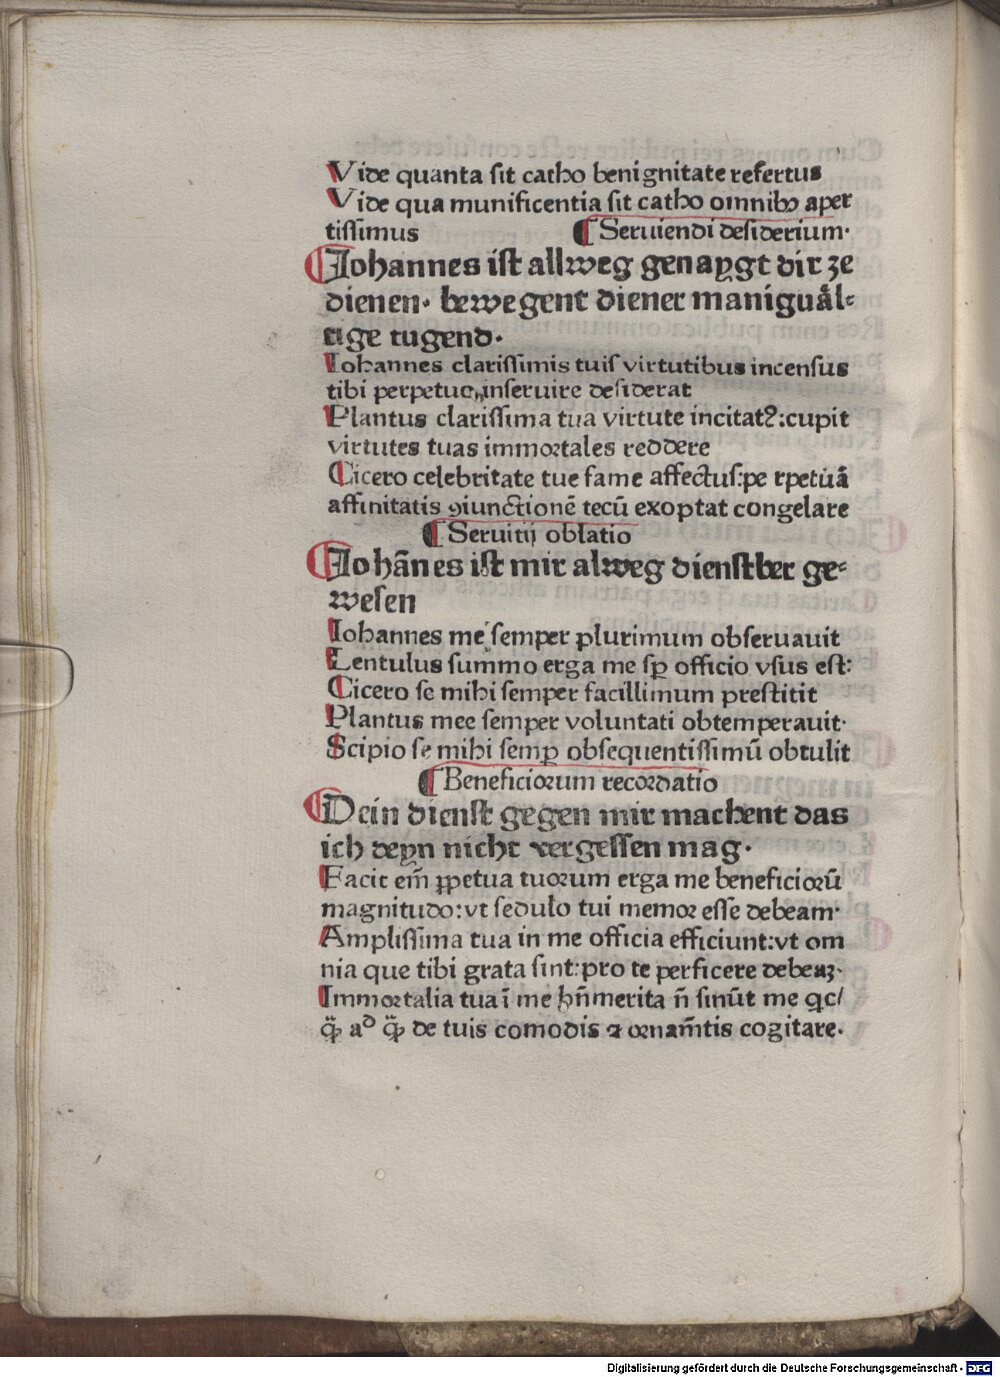 Vide quanta sit catho benignitate refertus
Vide qua munificentia sit catho omnibꝰ aper
tissimus ¶ Seruiendi desiderium·
¶ Johannes ist allweg genaygt dir ze
dienen· bewegent diener maniguåltige
tige tugend·
Iohannes clarissimis tuis virtutibus incensus
tibi perpetuo inseruire desiderat
Plantus clarissima tua virtute incitatꝰ:cupit
virtutes tuas immortales reddere
Cicero celebritate tue fame affectus:pe rpetuā
affinitatis ꝯiunctionē tecū exoptat congelare
¶ Seruitij oblatio
¶ Johānes ist mir alweg dienstber ge⸗
wesen
Iohannes me semper plurimum obseruauit
Lentulus summo erga me sꝑ officio vsus est:
Cicero se mihi semper facillimum prestitit
Plantus mee semper voluntati obtemperauit·
Scipio se mihi semꝑ obsequentissimū obtulit
¶ Beneficiorum recordatio
¶ Dein dienst gegen mir machent das
ich deyn nicht vergessen mag·
Facit em̄ ꝑpetua tuorum erga me beneficiorū
magnitudo:vt sedulo tui memor esse debeam·
Amplissima tua in me officia efficiunt:vt om
nia que tibi grata sint:pro te perficere debeaꝫ·
Immortalia tua ī me bn̄merita n̄ sinūt me qc/
ꝙ̄ aᵈ ꝙ̄ de tuis comodis ⁊ ornam̄tis cogitare·
Digitalisierung gefördert durch die Deutsche Forschungsgemeinschaft - DFG